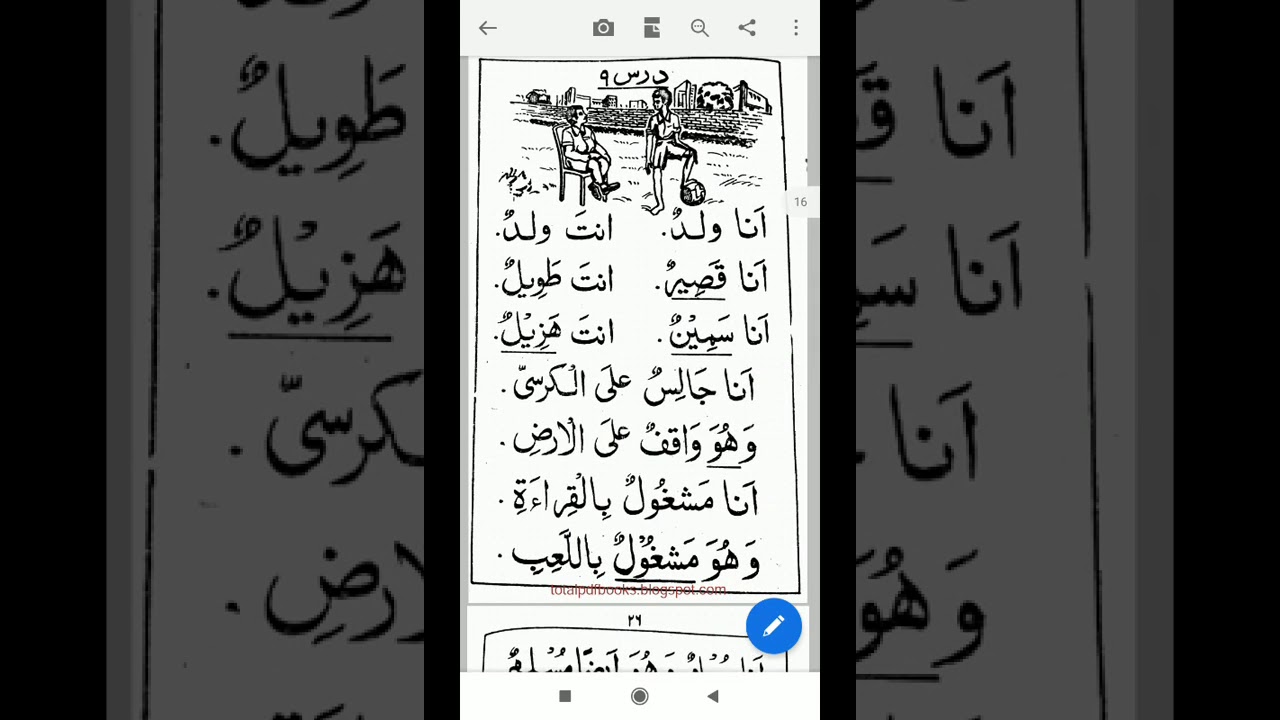 درس ٩
16
اَنا ولـدٌ. انتَ ولـدٌ.
اَنا قَصِيرٌ. انتَ طَوِيلٌ.
اَنا سَمِيْنٌ. انتَ هَزِيْلٌ.
اَنا جَالِسٌ علىَ الْـكرسىّ.
وَهُوَ وَاقفٌ علىَ الْارضِ.
اَنا مَشغُولٌ بِالْقِراءَةِ.
وَهُوَ مَشغُوْلٌ بِاللَّعِبِ.
totalpdfbooks.blogspot.com
٢٦